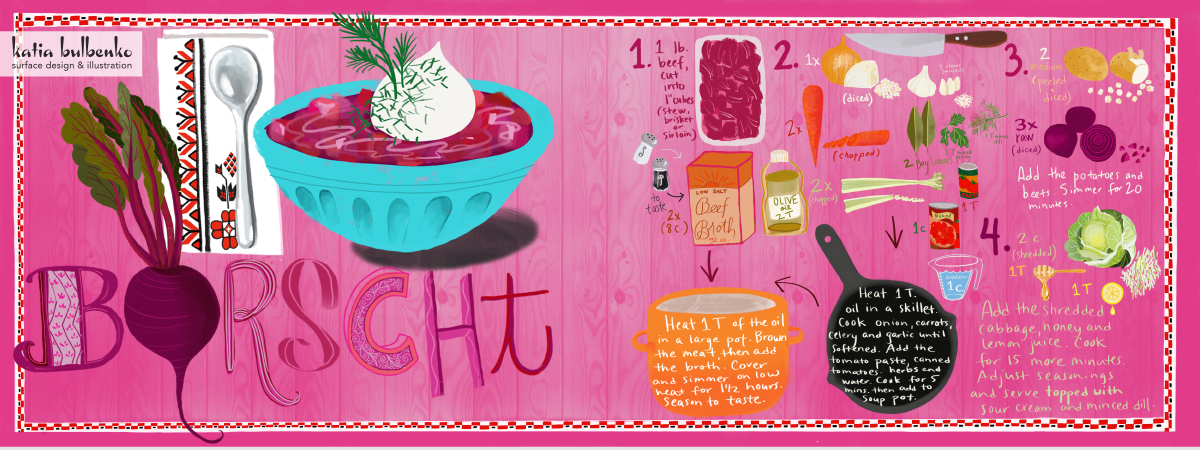 katia bulbenko
surface design & illustration
BORSCHt
1.
1 lb.
beef,
cut
into
1" cubes
(stew,
brisket
or
sirloin)
S
P
to
taste
2x
(8 c.)
LOW SALT
Beef
Broth
OLIVE
oil
2 T
Heat 1 T of the oil
in a large pot. Brown
the meat, then add
the broth. Cover
and simmer on low
heat for 1 1/2 hours.
Season to taste.
2.
1x
(diced)
2x
(chopped)
2 Bay
2x
(chopped)
1 T
1 c.
1 c.
Heat 1 T.
oil in a skillet.
Cook onion, carrots,
celery and garlic until
softened. Add the
tomato paste, canned
tomatoes, herbs and
water. Cook for 5
mins. then add to
soup pot.
3.
2
medium
(peeled
& diced)
3x
raw
(diced)
Add the potatoes and
beets. Simmer for 20
minutes.
4.
2 c.
(shredded)
1T
1T
Add the shredded
cabbage, honey and
lemon juice. Cook
for 15 more minutes.
Adjust seasonings
and serve topped with
sour cream and minced dill.